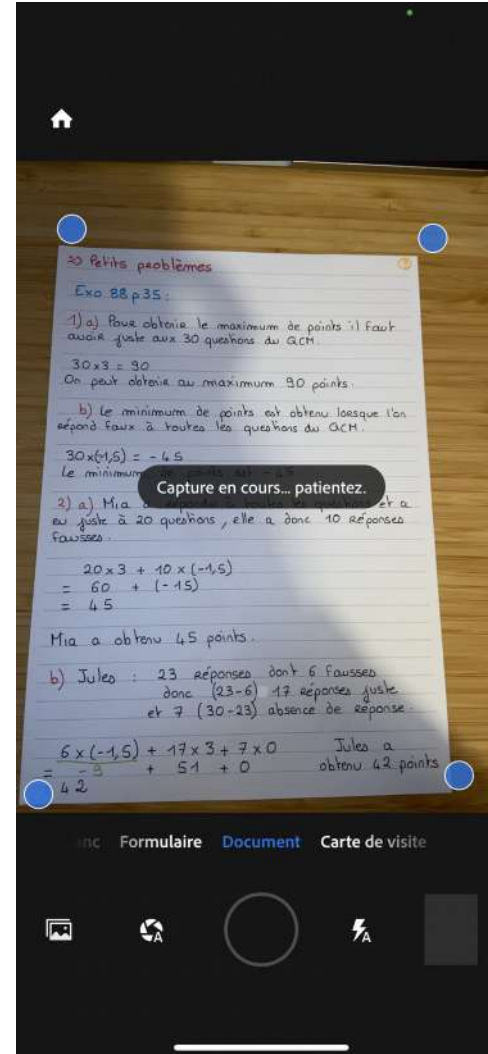 Petits problèmes
Exo 88 p 35 :
1) a) Pour obtenir le maximum de points il faut
avoir juste aux 30 questions du QCM.
30 x 3 = 90
On peut obtenir au maximum 90 points.
b) Le minimum de points est obtenu lorsque l'on
répond faux à toutes les questions du QCM.
30 x (-1,5) = - 45
Le minimum de points est - 45
Capture en cours... patientez.
2) a) Mia a répondu à toutes les questions et a
eu juste à 20 questions, elle a donc 10 réponses
fausses.
20 x 3 + 10 x (-1,5)
= 60 + (-15)
= 45
Mia a obtenu 45 points.
b) Jules : 23 réponses dont 6 fausses
donc (23-6) 17 réponses juste
et 7 (30-23) absence de réponse.
6 x (-1,5) + 17 x 3 + 7 x 0 Jules a
= - 9 + 51 + 0 obtenu 42 points
42
Formulaire Document Carte de visite